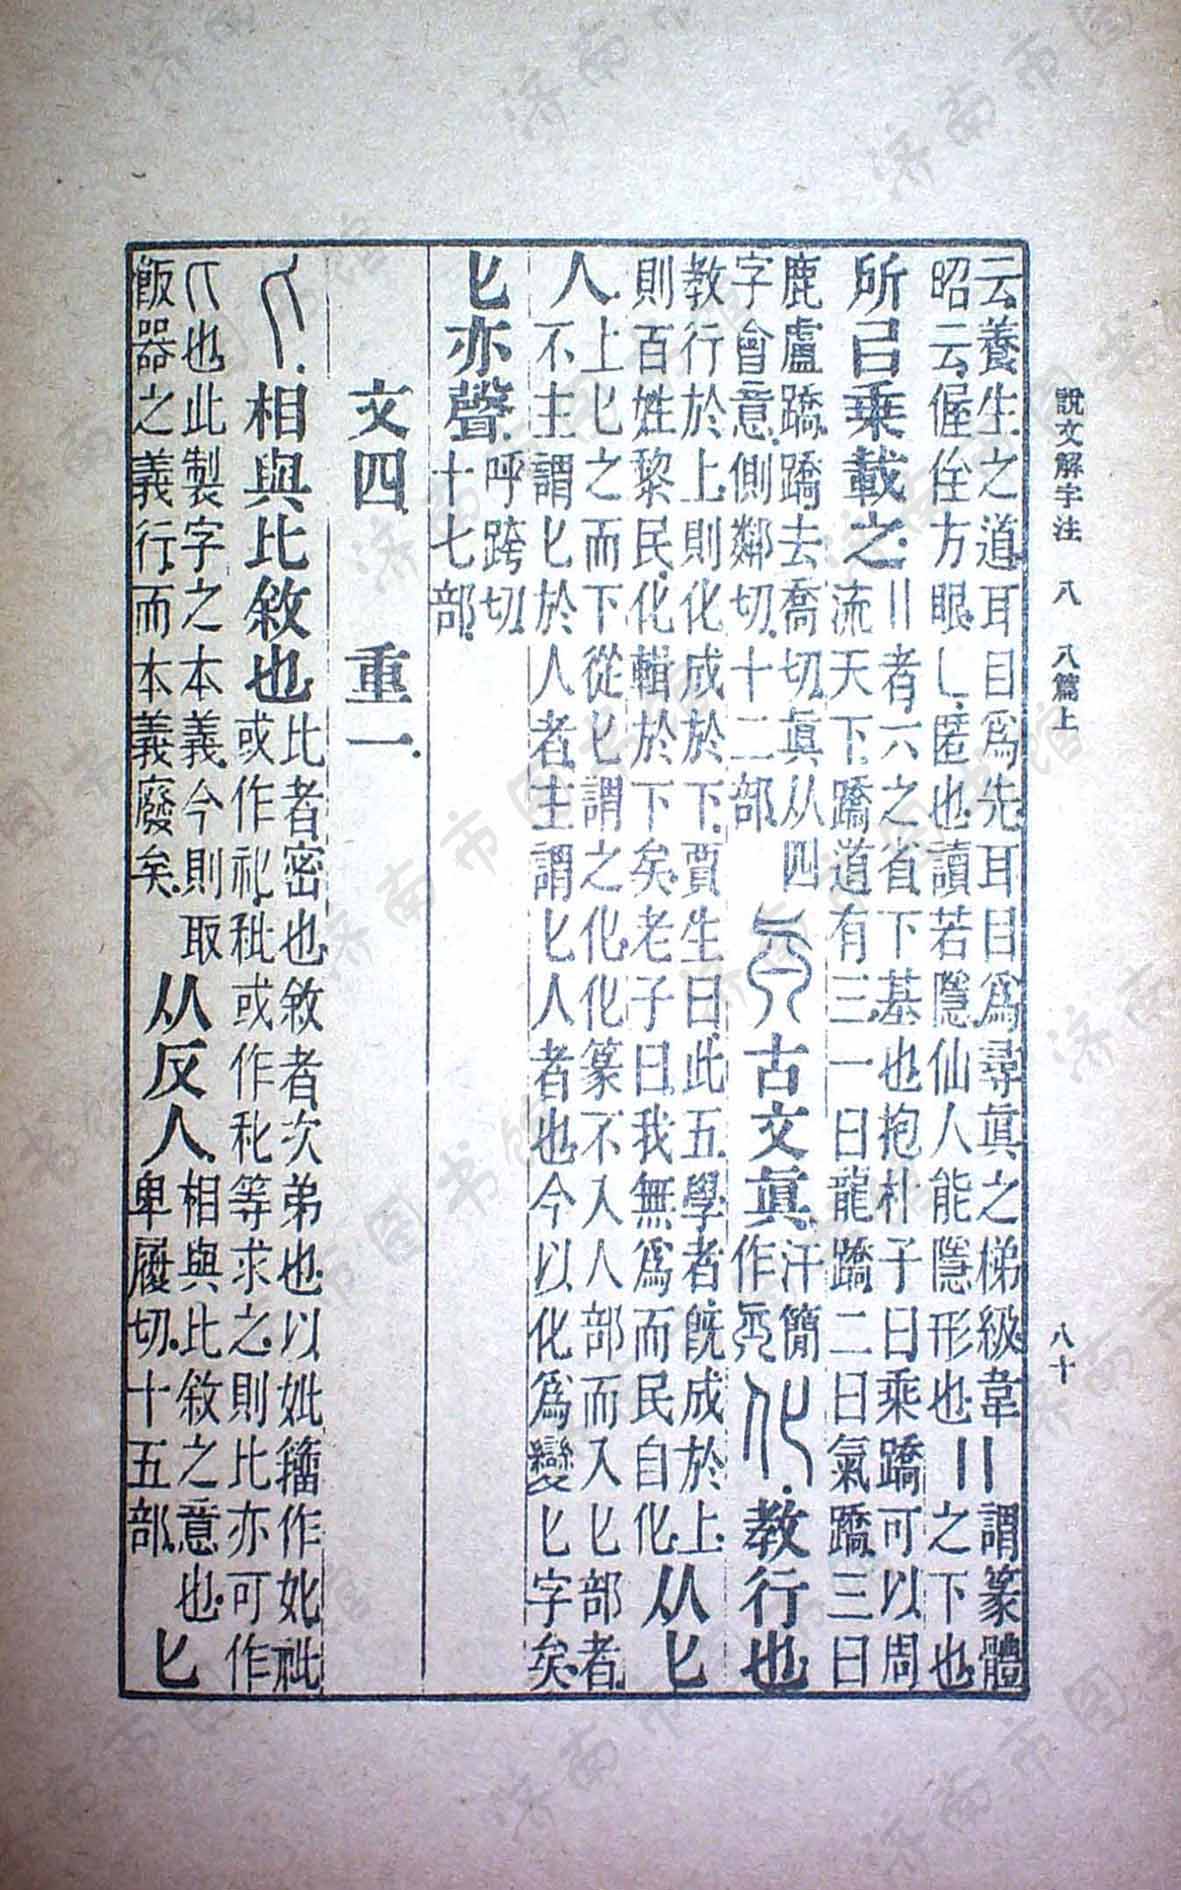 說文解字注 八 八篇上 八十
云養生之道耳目爲先耳目爲尋眞之梯級韋〢謂篆體
昭云偓佺方眼乚匿也讀若隱仙人能隱形也〢之下也
所㠯乘載之
〢者六之省下基也抱朴子曰乘蹻可以周
流天下蹻道有三一曰龍蹻二曰氣蹻三曰
鹿盧蹻蹻去喬切眞从四
字會意側鄰切十二部
古文眞
汗簡
作
化
教行也
教行於上則化成於下賈生曰此五學者旣成於上
則百姓黎民化輯於下矣老子曰我無爲而民自化
从匕
人
上匕之而下從匕謂之化化篆不入人部而入匕部者
不主謂匕於人者主謂匕人者也今以化爲變匕字矣
匕亦聲
呼跨切
十七部
文四 重一
匕
相與比敘也
比者密也敘者次弟也以妣籒作
或作秕或作等求之則比亦可作
匕也此製字之本義今則取
飯器之義行而本義廢矣
从反人
相與比敘之意也
卑履切十五部
匕
济南市图书馆